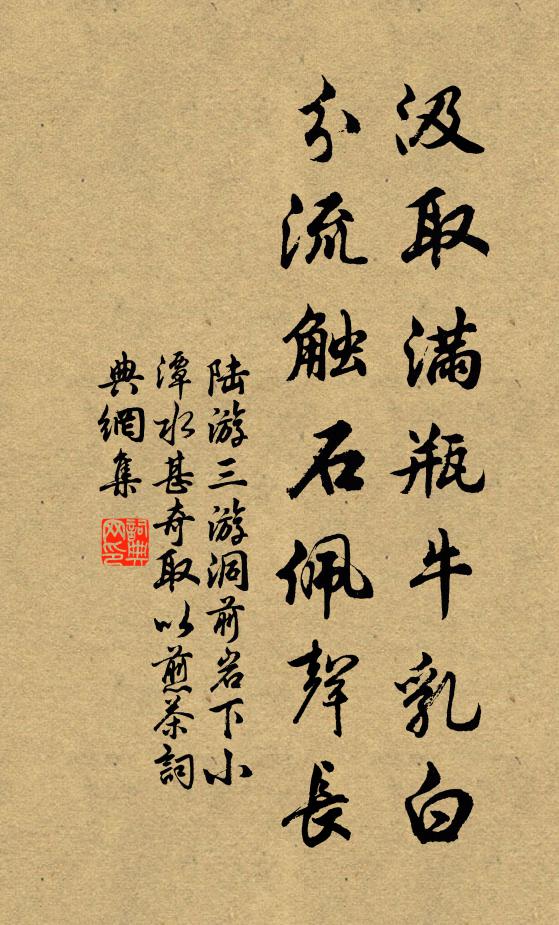 汲取满瓶牛乳白
分流触石佩聲長
陆游三游洞前岩下小
潭水甚奇取以煎茶詞
典網集
詞典
网印